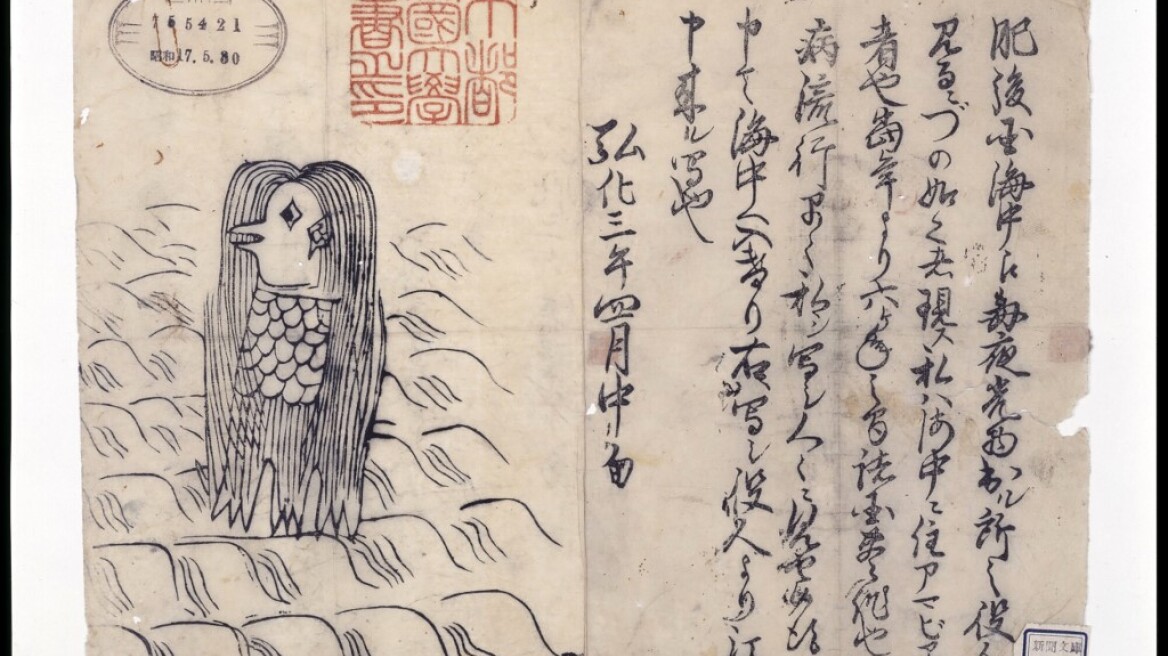 755421
昭和17.5.30
都
國大學
書之印
肥後国海中え毎夜光物出ル所之役人
見るニづの如く者現ス私ハ海中ニ住アマビヱ
者也當年より六ヶ年之間諸国豊作也
病流行早々私シ写シ人々ニ見せ候
申て海中へ入けり右写シ役人より江
申来ル写也
弘化三年四月中旬
新聞文庫